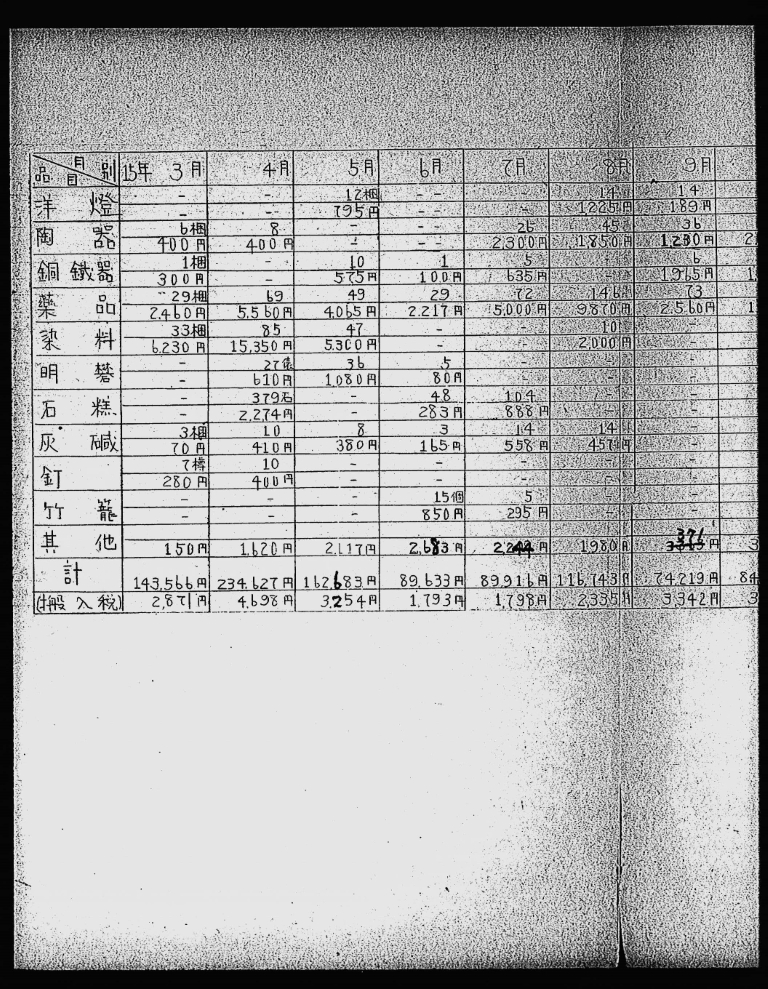 品目 月別 15年 3月 4月 5月 6月 7月 8月 9月
洋燈 - - 12梱 - - - 14 14
- - 795円 - - - 1225円 189円
陶器 6梱 8 - - - 26 45 36
400円 400円 - - - 2,300円 1,850円 1,230円
銅鐵器 1梱 - 10 1 5 - 6
300円 - 575円 100円 635円 - 1,965円
藥品 29梱 69 49 29 72 146 73
2,460円 5,560円 4,065円 2,217円 5,000円 9,870円 2,560円
染料 33梱 85 47 - - 10 -
6,230円 15,350円 5,300円 - - 2,000円 -
明礬 - 27俵 36 5 - - -
- 610円 1,080円 80円 - - -
石糕 - 379石 - 48 104 - -
- 2,274円 - 283円 888円 - -
灰碱 3梱 10 8 3 14 14 -
70円 410円 380円 165円 558円 457円 -
釘 7樽 10 - - - - -
280円 400円 - - - - -
竹籠 - - - 15個 5 - -
- - - 850円 295円 - -
其他 150円 1,620円 2,117円 2,683円 1,980円 円
計 143,566円 234,627円 162,683円 89,633円 89,916円 116,743円 74,219円 84
(搬入税) 2,871円 4,698円 3,254円 1,793円 1,798円 2,335円 3,342円 3